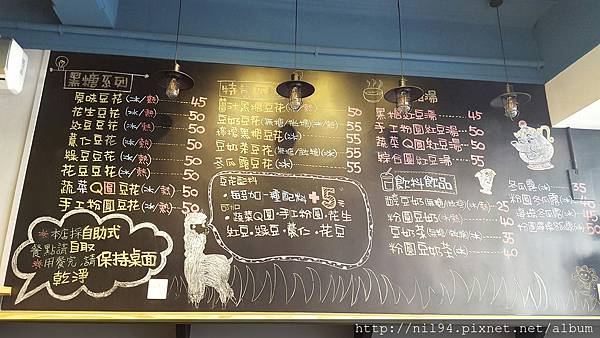 黑糖系列
原味豆花(冰/熱) 45
花生豆花(冰/熱) 50
紅豆豆花(冰/熱) 50
薏仁豆花(冰/熱) 50
綠豆豆花(冰/熱) 50
花豆豆花(冰/熱) 50
蔬菜Q圓豆花(冰/熱) 50
手工粉圓豆花(冰/熱) 50
※本店採自助式
餐點請自取
※用餐完，請保持桌面
乾淨
黑糖豆花(冰) 50
豆奶豆花 55
黑糖豆花(冰) 55
豆奶茶豆花 55
冬瓜露豆花(冰) 55
豆花配料
每多加一種配料+5元
蔬菜Q圓·手工粉圓·花生
紅豆·綠豆·薏仁·花豆
黑糖紅豆湯 45
手工粉圓紅豆湯 50
蔬菜Q圓紅豆湯 50
綜合圓紅豆湯 55
飲料飲品
豌豆奶 25
粉圓豆奶 45
豆奶茶 45
粉圓豆奶茶(冰) 55
冬瓜露(冰) 35
粉圓冬瓜露(冰) 45
50
http://nil94.pixnet.net/album